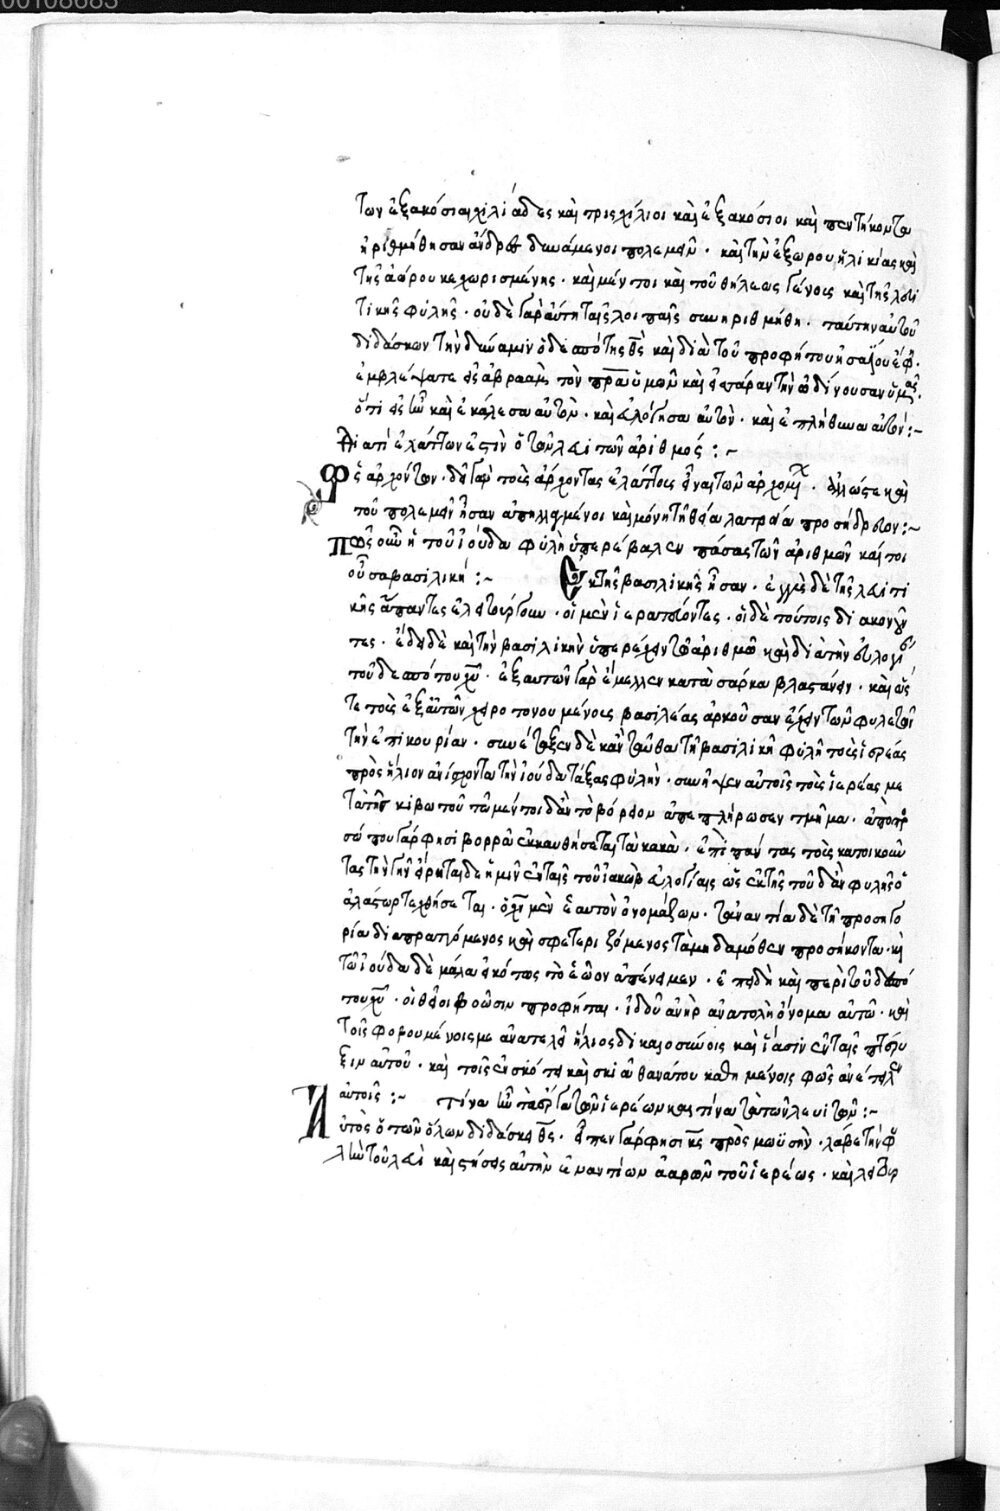 00108683
των ἑξακόσιαι χιλιάδες καὶ τρισχίλιοι καὶ ἑξακόσιοι καὶ πεντήκοντα
ἠριθμήθησαν ἄνδρες δυνάμενοι πολεμεῖν · καὶ τὴν ἔξωρον ἡλικίας καὶ
τῆς ἀώρου κεχωρισμένης · καὶ μέντοι καὶ τοῦ θήλεως γένους καὶ τῆς λευι
τικῆς φυλῆς · οὐδὲ γὰρ αὐτὴ ταῖς λοιπαῖς συνηριθμήθη · ταύτην αὐτοῦ
διδάσκων τὴν δύναμιν ὁ δεσπότης θς καὶ διὰ τοῦ προφήτου ἠσαΐου ἔφη ·
ἐμβλέψατε εἰς ἀβραὰμ τὸν πρα ὑμῶν καὶ εἰς σάρραν τὴν ὠδίνουσαν ὑμας ·
ὅτι εἷς ἦν καὶ ἐκάλεσα αὐτὸν · καὶ εὐλόγησα αὐτὸν · καὶ ἐπλήθυνα αὐτόν :~
Διατί ἐλάττων ἐστὶν ὁ τῶν λευιτῶν ἀριθμός : ~
Ως ἀρχόντων · δεῖ γὰρ τοὺς ἄρχοντας ἐλάττους εἶναι τῶν ἀρχομ · ἄλλως τε καὶ
τοῦ πολεμεῖν ἦσαν ἀπηλλαγμένοι καὶ μόνῃ τῇ θείᾳ λατρείᾳ προσήδρευον :~
Πῶς οὖν ἡ τοῦ ἰούδα φυλὴ ὑπερέβαλεν πάσας τῶν ἀριθμῶν καίτοι
οὖσα βασιλική :~ Ἐκ τῆς βασιλικῆς ἦσαν · ἐκ δὲ τῆς λευιτι
κῆς ἅπαντες ἐλειτούργουν · οἱ μὲν ἱερατεύοντες · οἱ δὲ τούτοις διακονοῦν
τες · ἔδει δὲ καὶ τὴν βασιλικὴν ὑπερέχειν τῷ ἀριθμῷ καὶ διὰ τὴν εὐλογί
τοῦ δεσπότου χυ · ἐξ αὐτῶν γὰρ ἔμελλεν κατὰ σάρκα βλαστάνειν · καὶ ὥς
τε τοὺς ἐξ αὐτῶν χειροτονουμένους βασιλέας ἀρκοῦσαν ἔχειν τῶν φυλετῶν
τὴν ἐπικουρίαν · συνέταξεν δὲ κἀνταῦθα τῇ βασιλικῇ φυλῇ τοὺς ἱερέας
πρὸς ἥλιον ἀνίσχοντα τὴν ἰούδα τάξας φυλήν · συνῆψεν αὐτοῖς τοὺς ἱερέας με
τὰ τῆς κιβωτοῦ τῷ μέντοι δὰν τὸ βόρειον ἀπεπλήρωσεν τμῆμα · ἀπὸ προ
σώπου γάρ φησι βορρᾶ ἐκκαυθήσεται τὰ κακὰ · ἐπὶ πάντας τοὺς κατοικοῦν
τας τὴν γῆν εἴρηται δὲ ἡμῖν ἐν ταῖς τοῦ ἰακὼβ εὐλογίαις ὡς ἐκ τῆς τοῦ δὰν φυλῆς ὁ
ἀλάστωρ τεχθήσεται · ὁ χν μὲν ἑαυτὸν ὀνομάζων · τἀναντία δὲ τῇ προσηγο
ρίᾳ διαπραττόμενος καὶ σφετεριζόμενος τὰ μηδαμόθεν προσήκοντα · καὶ
τῷ ἰούδα δὲ μάλα εἰκότως τὸ ἑῷον ἀπένειμεν · ἐπειδὴ καὶ περὶ τοῦ δεσπό
του χυ · οἱ θεῖοι βοῶσιν προφῆται · ἰδοῦ ἀνὴρ ἀνατολὴ ὄνομα αὐτῷ · καὶ
τοῖς φοβουμένοις με ἀνατελεῖ ἥλιος δικαιοσύνης καὶ ἴασιν ἐν ταῖς πτέρυ
ξιν αὐτοῦ · καὶ τοῖς ἐν σκότει καὶ σκιᾷ θανάτου καθημένοις φῶς ἀνέτειλεν
αὐτοῖς :~ τίνα ἦν τὰ ἔργα τῶν ἱερέων καὶ τίνα τὰ τῶν λευιτῶν :~
Αὐτὸς ὁ τῶν ὅλων διδάσκει θς · εἶπεν γάρ φησι κς πρὸς μωϋσὴν · λάβε τὴν φυ
λὴν τοῦ λευὶ καὶ στήσεις αὐτὴν ἐναντίον ἀαρὼν τοῦ ἱερέως · καὶ λειτουρ